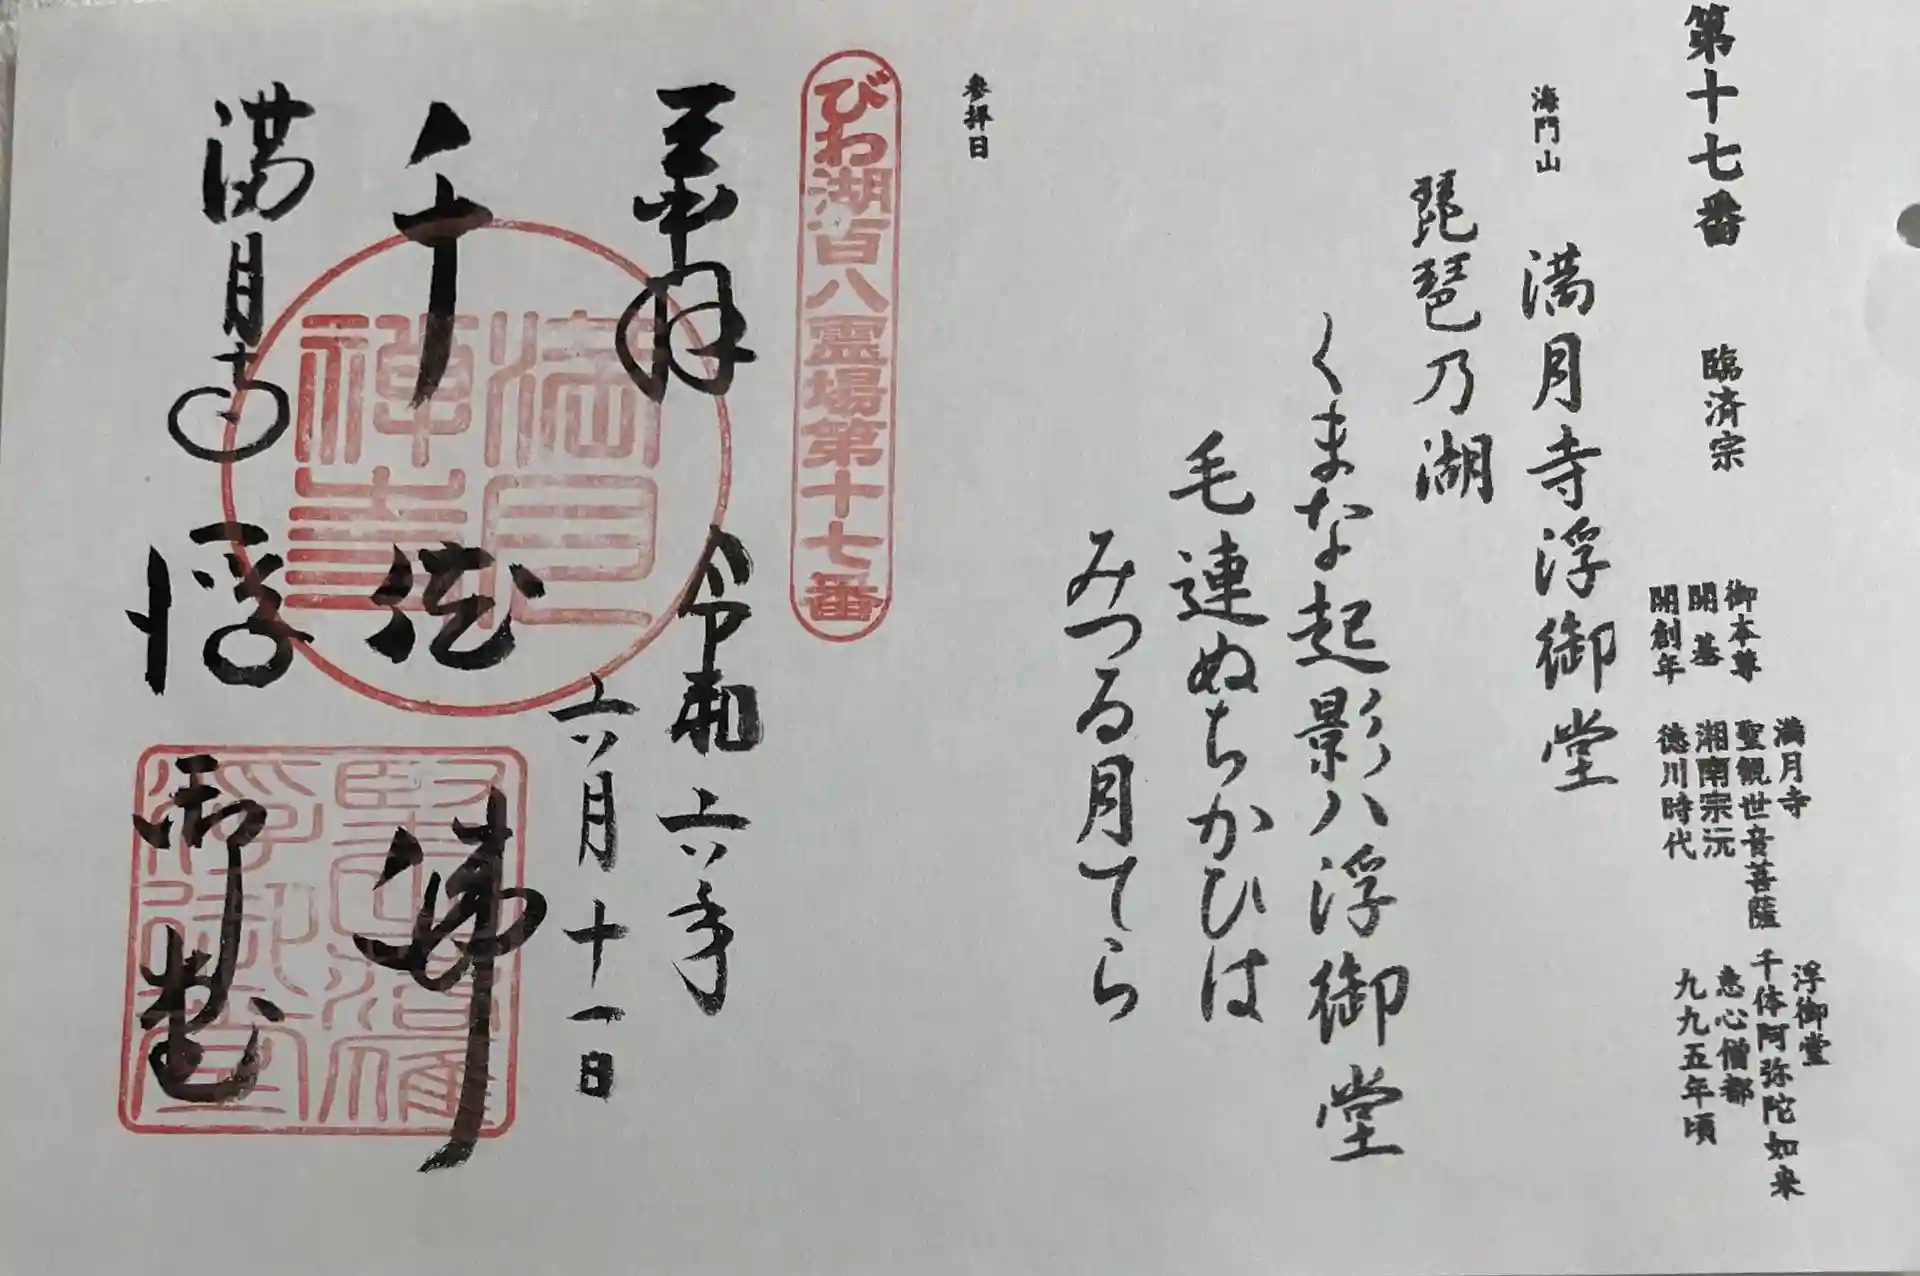 第十七番 臨済宗
満月寺 浮御堂
御本尊 聖観世音菩薩 千体阿弥陀如来
開基 湘南宗沅 恵心僧都
開創年 徳川時代 九九五年頃
海門山 満月寺浮御堂
琵琶乃湖
くまな起影八浮御堂
毛連ぬちかひは
みつる月てら
参拝日
びわ湖百八霊場第十七番
奉拝 令和六年
六月十一日
千体佛
満月寺 浮御堂
満月
禅寺
浮御堂